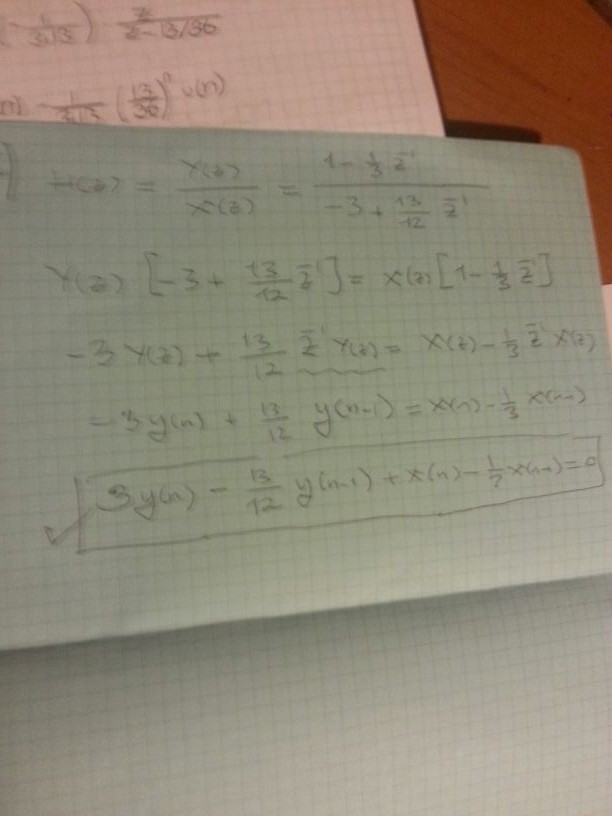 z / z-13/36
1/313 (13/36)ⁿ u(n)
H(z) = Y(z)/X(z) = 1 - 1/3 z⁻¹ / -3 + 13/12 z⁻¹
Y(z) [-3 + 13/12 z⁻¹] = X(z) [1 - 1/3 z⁻¹]
-3 Y(z) + 13/12 z⁻¹ Y(z) = X(z) - 1/3 z⁻¹ X(z)
-3y(n) + 13/12 y(n-1) = x(n) - 1/3 x(n-1)
3y(n) - 13/12 y(n-1) + x(n) - 1/3 x(n-1) = 0